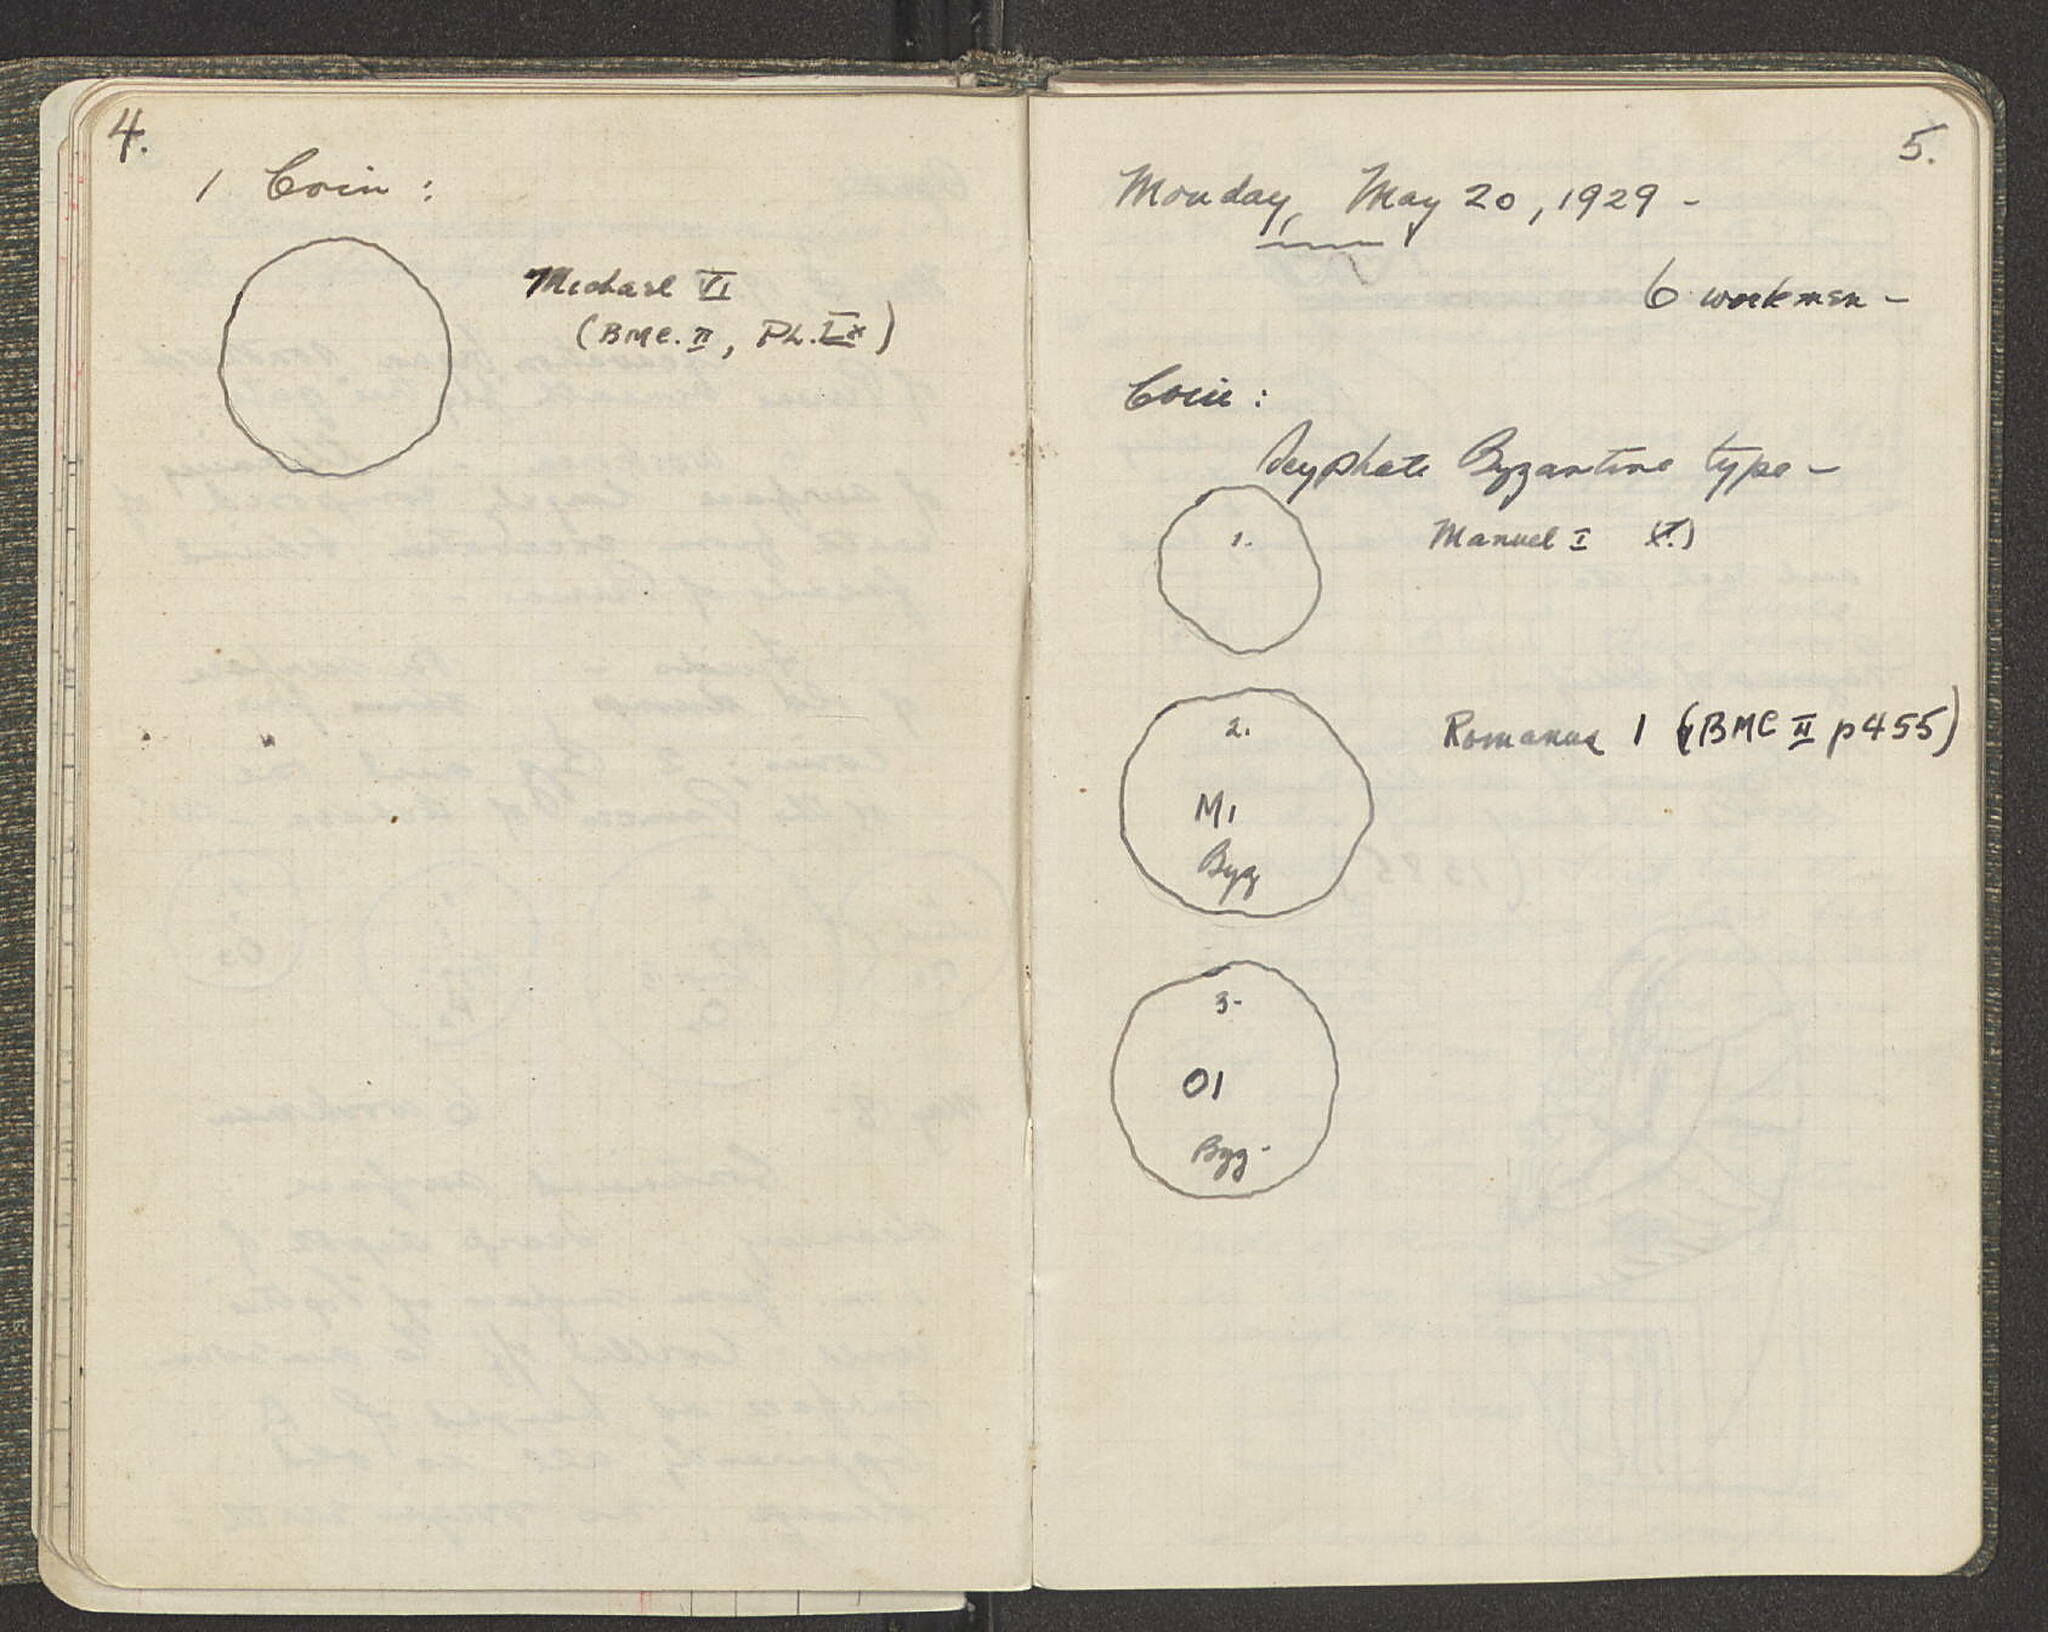 4.
1 Coin :
Michael VI
(BMC. II, PL. LX)
5.
Monday, May 20, 1929 -
6 workmen -
Coin :
Scyphate Byzantine type -
1.
Manuel I
2.
Romanus 1 (BMC II p455)
M1
Byz
3-
O1
Byz-